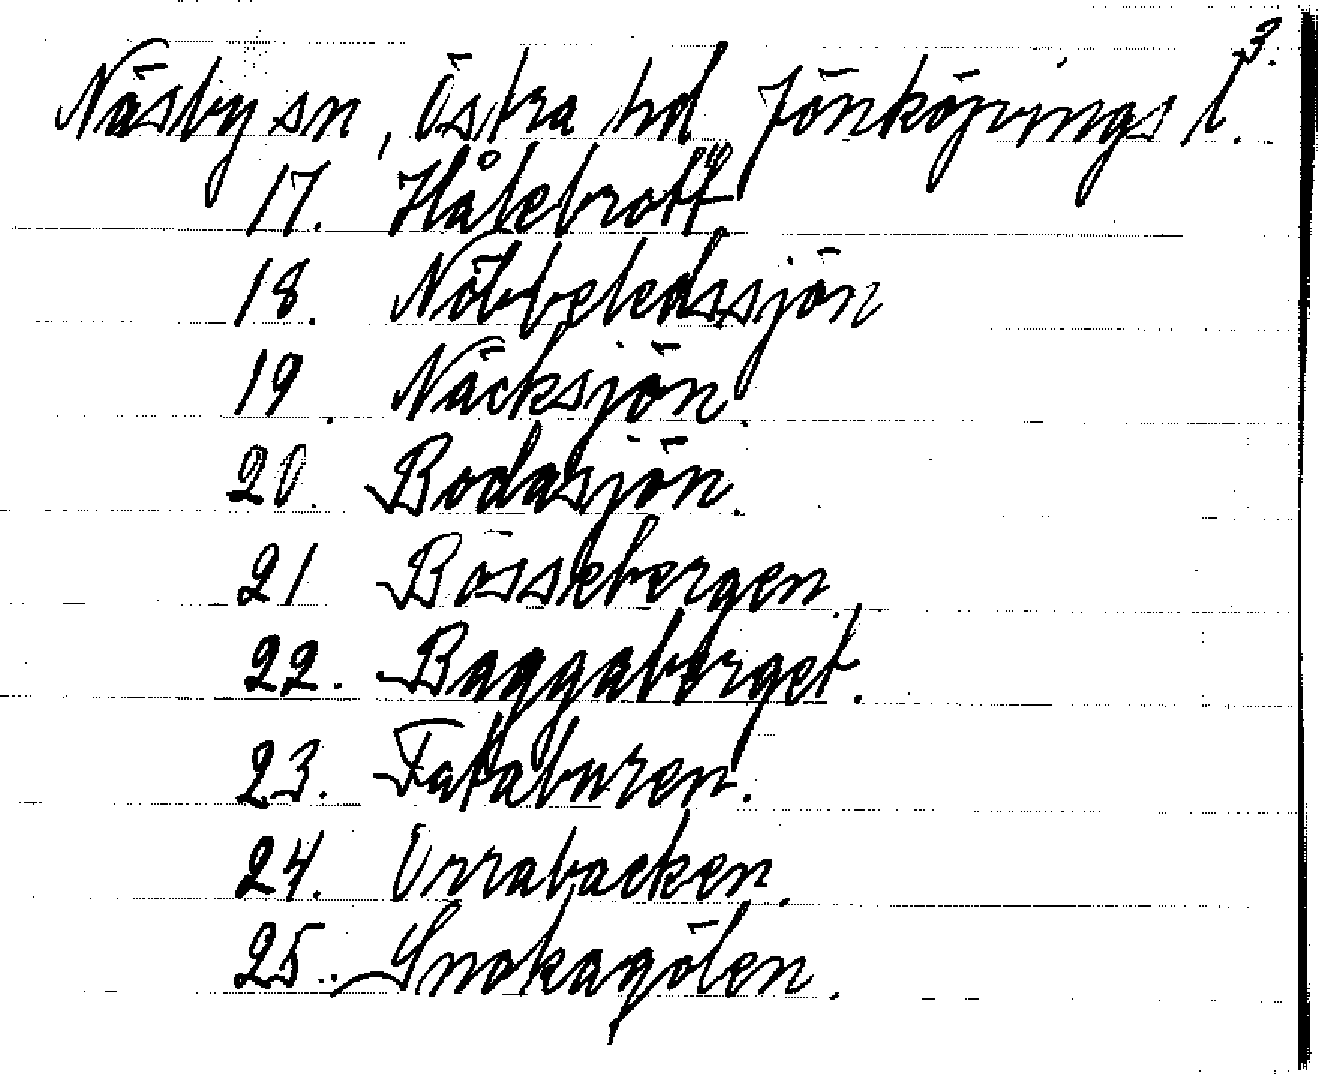 3.
Näsby sn, Östra hd Jönköpings l.
17. Hålebroff
18. Nöbbeledssjön
19. Näcksjön.
20. Bodasjön.
21 Bössebergen.
22. Baggaberget.
23. Fataburen.
24. Orrabacken.
25. Snokagölen.